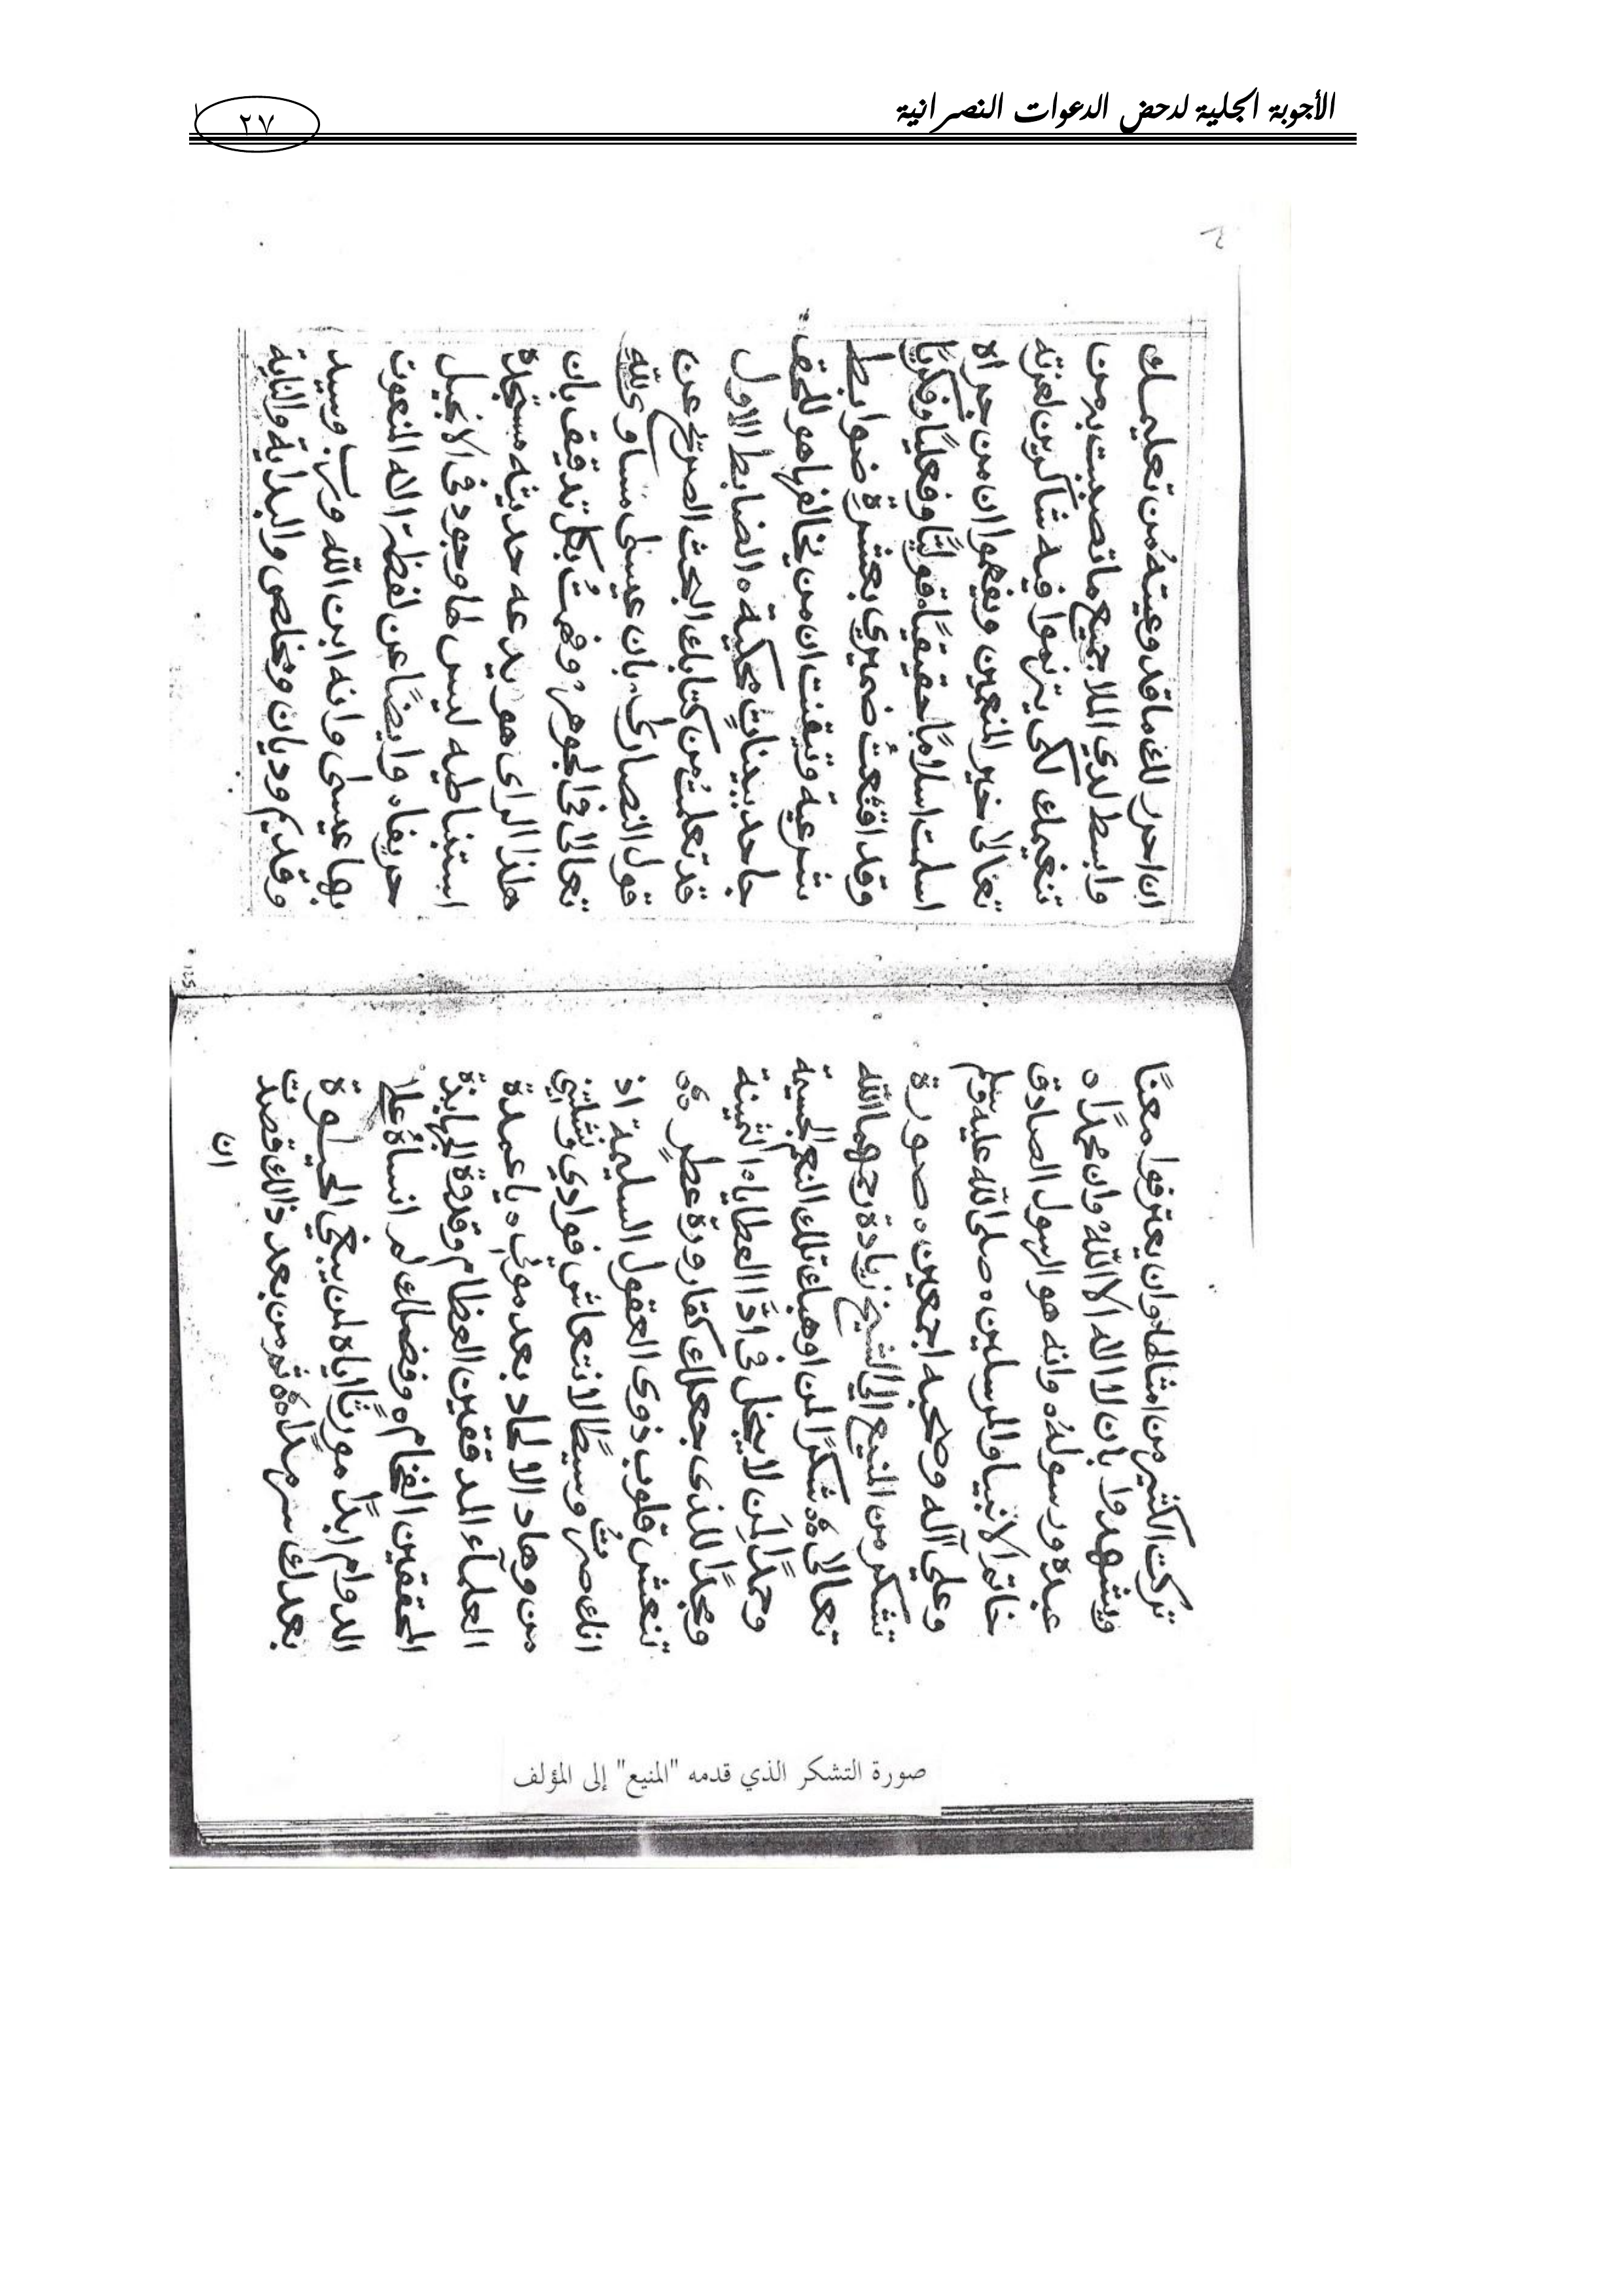 الأجوبة الجلية لدحض الدعوات النصرانية
٢٧
تركت الكثير من امثالها وان يعترفوا معنًا
ويشهدوا بان لا اله الا الله وان محمدًا ه
عبده ورسوله ه وانه هو الرسول الصادق
خاتم الانبيا والمرسلين ه صلى الله عليه وسلم
وعلى آله وصحبه اجمعين ه صورة
تشكر من المنيع الي الشيخ زيادة رحمهما الله
تعالى ه شكرًا لمن اوهبك تلك النعم الجسيمة
وحمدًا لمن لا يبخل في اذا العطاياه الثمينة
ومجدًا للذى جعلك كقارورة عطرٍ ه
تنعش قلوب ذوى العقول السليمة اذ
انك صرتُ وسيطًا لانتعاش فوادي ونشلتني
من وهاد الالحاد بعد موتي ه يا عمدة
العلمآء المدققين العظام وقدوة الجهابذة
المحققين الفخام ه وفضلك لم انساهُ علا
الدوام ابدًا مورثًا اياه لمن ينجي الحياوة
بعدك سرمدًا ه ثم من بعد ذالك قصدت
ان
ان احرر لك ماقد وعيته من تعليمك
وابسط لدي الملا جميع ما تصببت به من
تنغيمك لكى يترنموا فيه شاكرين لعزته
تعالى خير المنعمين ويفهموا ان من جراه
اسلمت اسلامًا حقيقيًا قوليًا وفعليًا وفكريًا
وقد اقتعتُ ضميري بعشرة ضوابط
شرعية وتيقنت ان من يخالفها هو للحق
جاحد ببيناتٍ محكية ه الضابط الاول
قد تعلمتُ من كتابك البحث الصريح عن
قول النصارى بان عيسى مساوى لله
تعالى في الجوهر وفهمتُ بكل تدقيق بان
هذا الراى هو بدعه حديثه مستجدة
استنباطيه ليس لها وجود في الانجيل
حريفاه وايضًا عن لفظة الاله المنعوت
بها عيسى وانه ابن الله ورب وسيد
وقديم وديان ومخلص والبداية والناية
صورة التشكر الذي قدمه "المنيع" إلى المؤلف